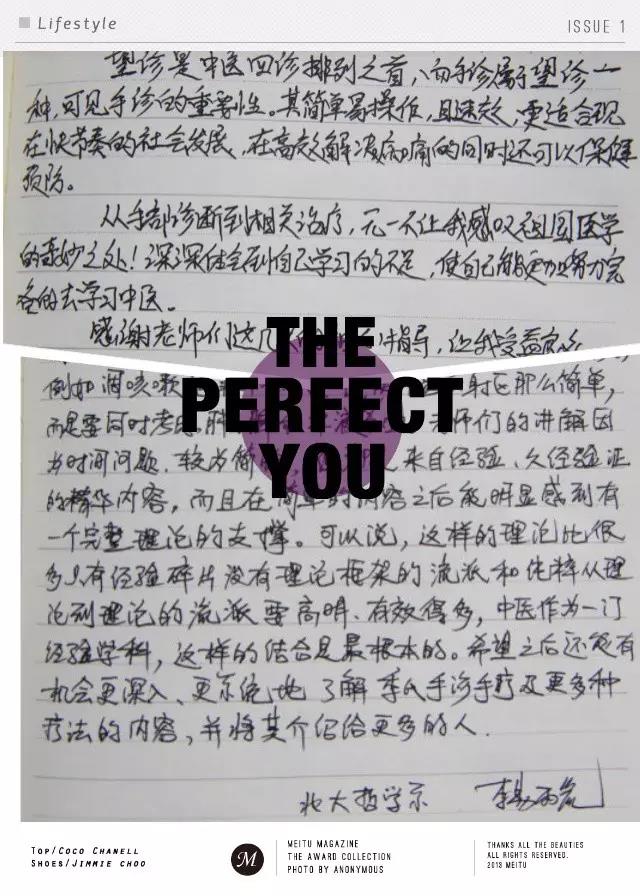 Lifestyle
ISSUE 1
望诊是中医四诊排列之首,而手诊属于望诊一
种,可见手诊的重要性。其简单易操作,且速效,更适合现
在快节奏的社会发展,在高效解决病痛的同时还可以保健
预防。
从手部诊断到相关治疗,无一不让我感叹祖国医学
的奇妙之处!深深体会到自己学习的不足,使自己能更加努力完
备的去学习中医。
感谢老师们这几 指导,让我受益
THE
例如 咳嗽 射区那么简单,
PERFECT
而是要同时考虑 师们的讲解因
YOU
为时间问题,较为简 来自经验、久经验证
的精华内容,而且在简单的内容之后能明显感到有
一个完整理论的支撑。可以说,这样的理论比很
多只有经验碎片没有理论框架的流派和纯粹从理
论到理论的流派要高明、有效得多,中医作为一门
经验学科,这样的结合是最根本的。希望之后还能有
机会更深入、更系统地了解李氏手诊手疗及更多种
疗法的内容,并将其介绍给更多的人.
北大哲学系
TOP/COCO CHANELL
SHOES/JIMMIE CHOO
M
MEITU MAGAZINE
THE AWARD COLLECTION
PHOTO BY ANONYMOUS
THANKS ALL THE BEAUTIES
ALL RIGHTS RESERVED.
2013 MEITU